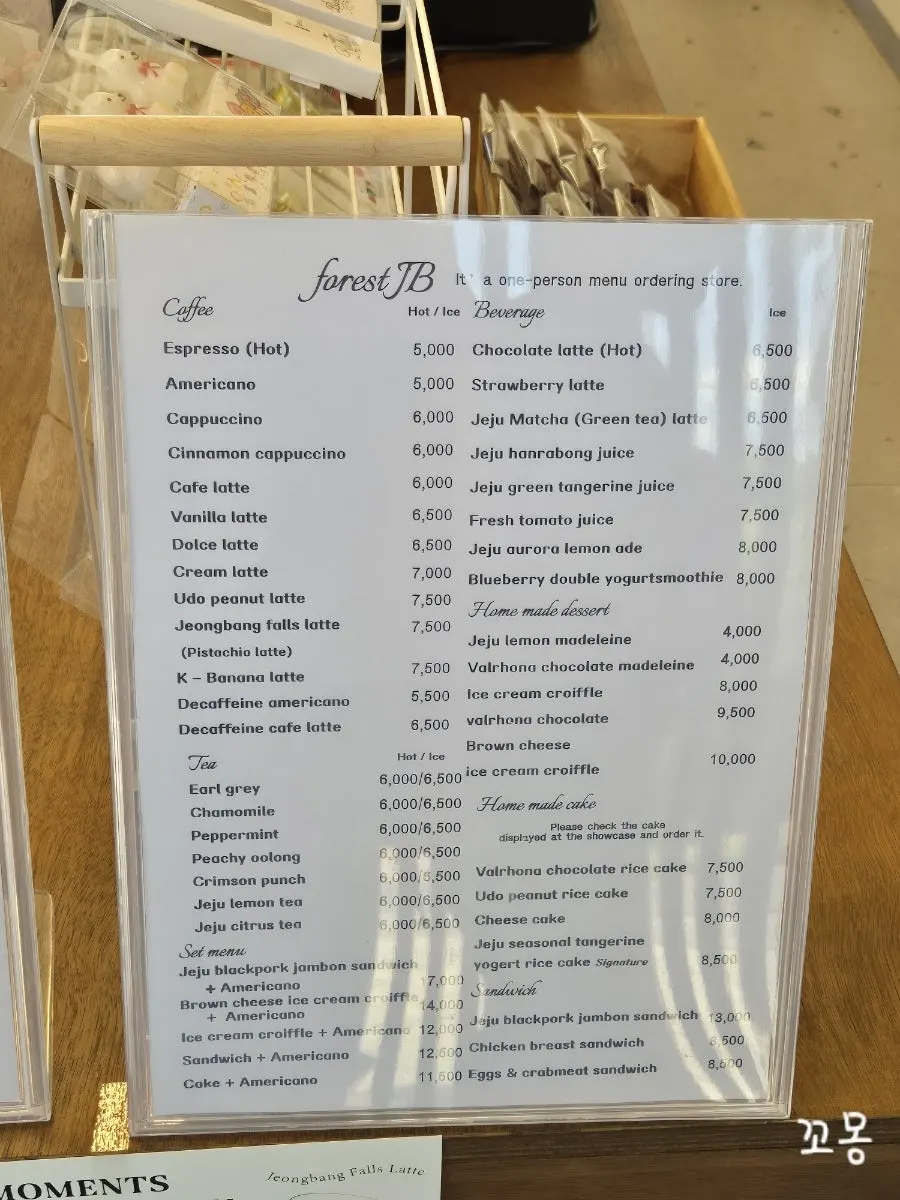 forest JB It's a one-person menu ordering store.
Coffee Hot / Ice
Espresso (Hot) 5,000
Americano 5,000
Cappuccino 6,000
Cinnamon cappuccino 6,000
Cafe latte 6,000
Vanilla latte 6,500
Dolce latte 6,500
Cream latte 7,000
Udo peanut latte 7,500
Jeongbang falls latte 7,500
(Pistachio latte)
K – Banana latte 7,500
Decaffeine americano 5,500
Decaffeine cafe latte 6,500
Tea Hot / Ice
Earl grey 6,000/6,500
Chamomile 6,000/6,500
Peppermint 6,000/6,500
Peachy oolong 6,000/6,500
Crimson punch 6,000/6,500
Jeju lemon tea 6,000/6,500
Jeju citrus tea 6,000/6,500
Set menu
Jeju blackpork jambon sandwich
+ Americano 17,000
Brown cheese ice cream croiffle 14,000
+ Americano
Ice cream croiffle + Americano 12,000
Sandwich + Americano 12,500
Cake + Americano 11,500
Beverage Ice
Chocolate latte (Hot) 6,500
Strawberry latte 6,500
Jeju Matcha (Green tea) latte 6,500
Jeju hanrabong juice 7,500
Jeju green tangerine juice 7,500
Fresh tomato juice 7,500
Jeju aurora lemon ade 8,000
Blueberry double yogurtsmoothie 8,000
Home made dessert
Jeju lemon madeleine 4,000
Valrhona chocolate madeleine 4,000
Ice cream croiffle 8,000
valrhona chocolate 9,500
Brown cheese
ice cream croiffle 10,000
Home made cake
Please check the cake
displayed at the showcase and order it.
Valrhona chocolate rice cake 7,500
Udo peanut rice cake 7,500
Cheese cake 8,000
Jeju seasonal tangerine
yogert rice cake Signature 8,500
Sandwich
Jeju blackpork jambon sandwich 13,000
Chicken breast sandwich 8,500
Eggs & crabmeat sandwich 8,500
MOMENTS
Jeongbang Falls Latte
꼬몽